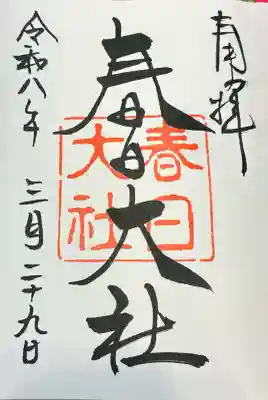 奉拝
春日大社
春日
大社
令和八年 三月 二十九日